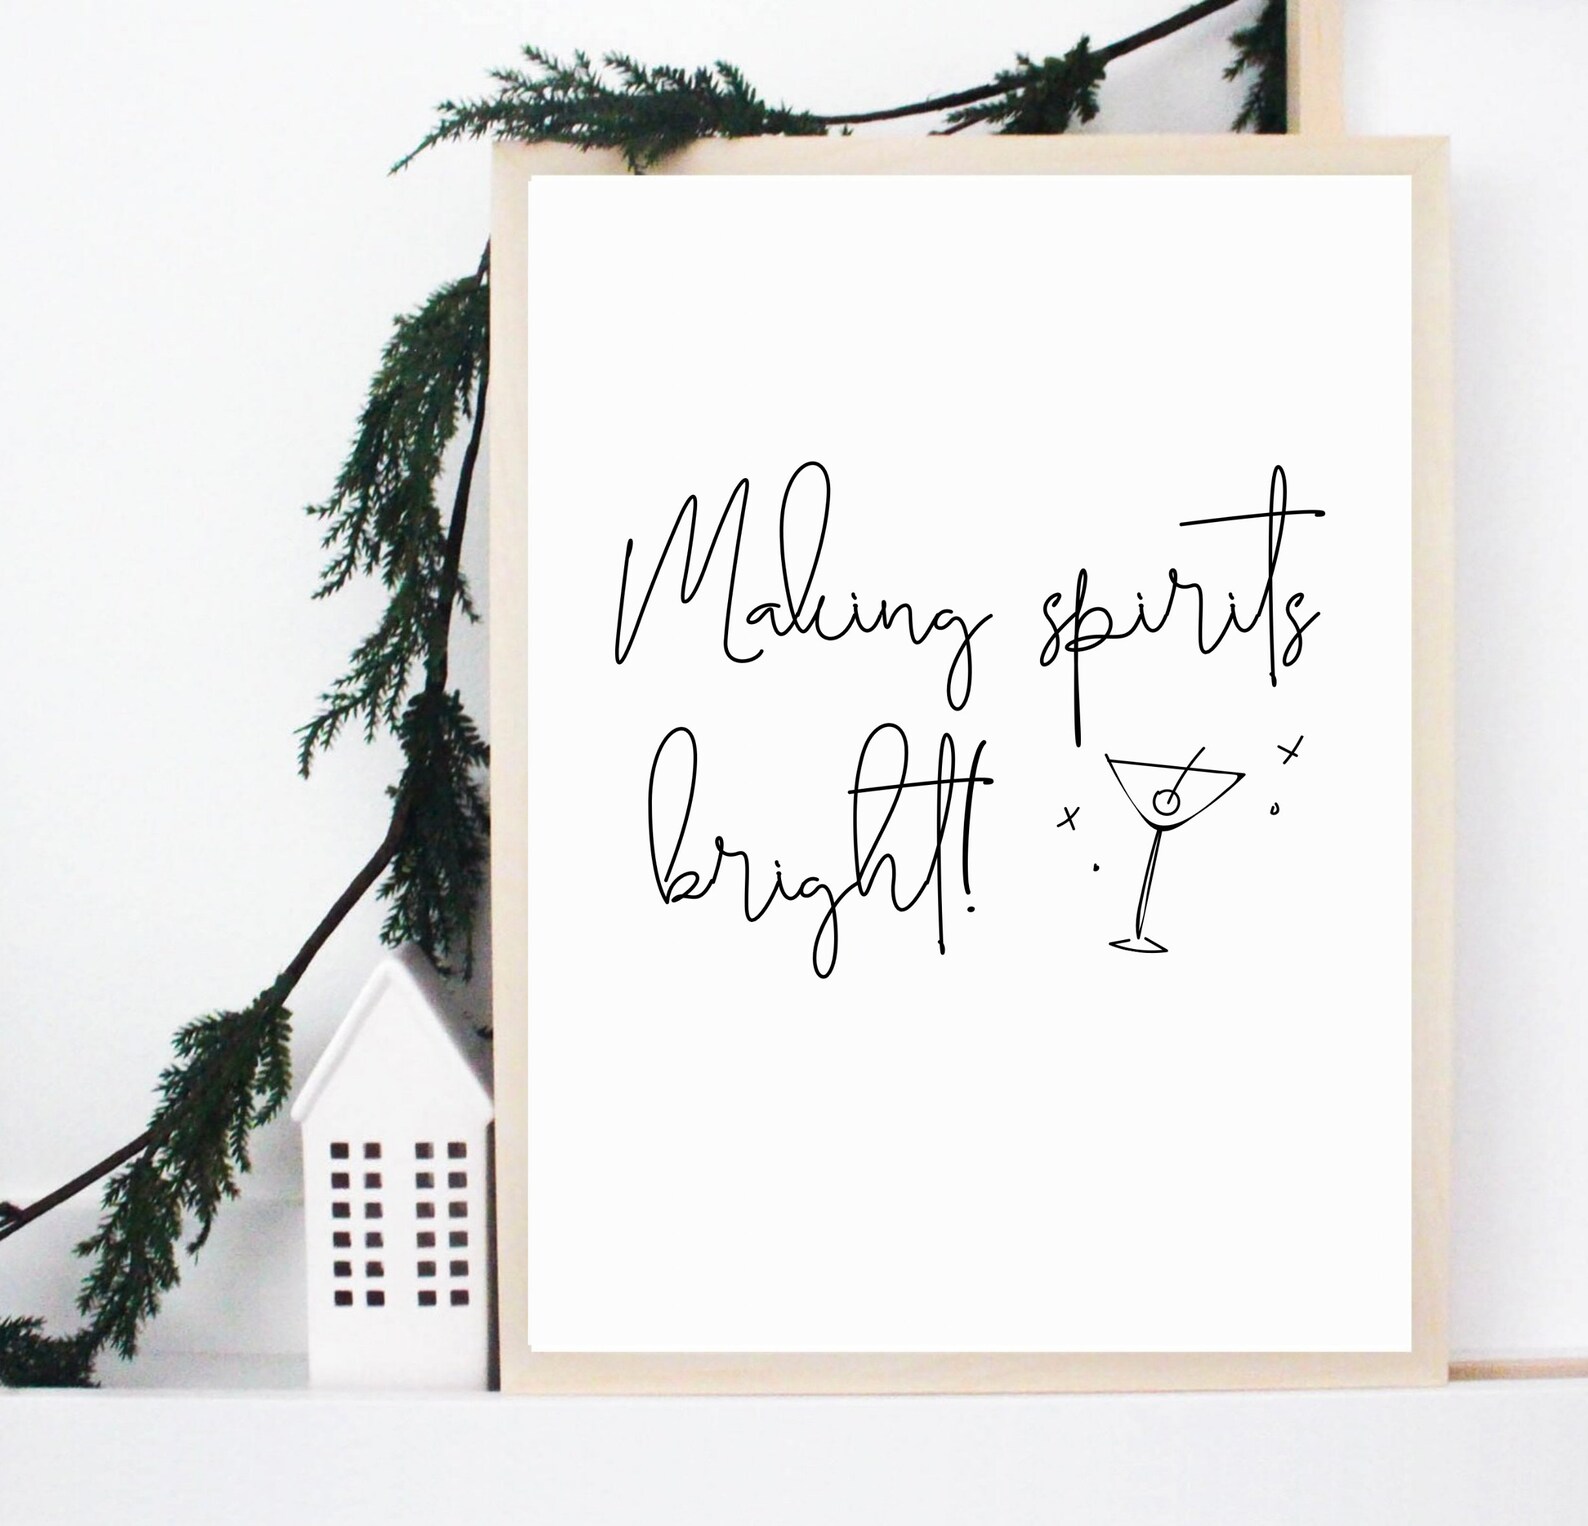 Making spirits
bright!